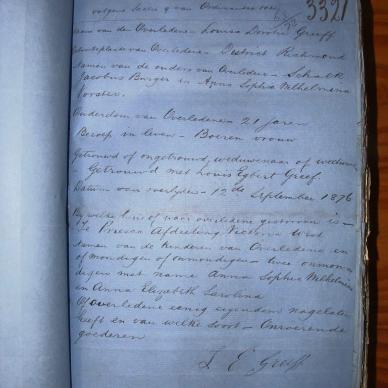 3321
volgens Sectie 9 van Ordonnantie 104
Naam van den Overledene - Louisa Dorothea Greeff
Geboorteplaats van Overledene - District Richmond
Namen van de ouders van Overledene - Schalk
Jacobus Burger en Anna Sophia Wilhelmina
Vorster.
Ouderdom van Overledene - 21 jaren
Beroep in leven - Boeren vrouw
Getrouwd of ongetrouwd, weduwenaar of weduwe
Getrouwd met Louis Egbert Greef.
Datum van overlyden - 12de September 1876
By welke huis of naar overledene gestorven is -
Te Prieska Afdeeling Victoria West
Namen van de kinderen van Overledene en
of mondigen of onmondigen - twee onmon
digen met name Anna Sophia Wilhelmina
en Anna Elizabeth Carolina
Of overledene eenig eigendom nagelaten
heeft en van welke soort - Onroerende
goederen
L E Greeff